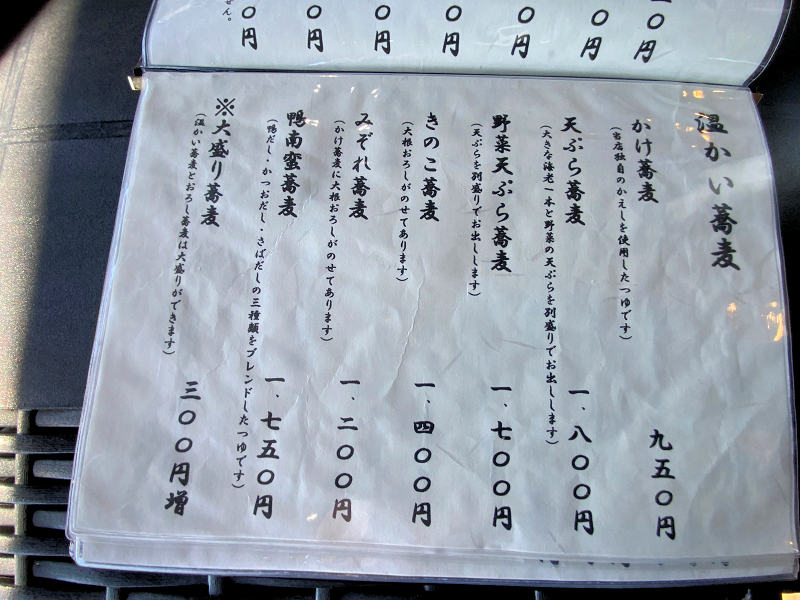 〇円
〇円
〇円
〇円
〇円
〇円
〇円
せん。
温かい蕎麦
かけ蕎麦
（当店独自のかえしを使用したつゆです）
九五〇円
天ぷら蕎麦
（大きな海老一本と野菜の天ぷらを別盛りでお出しします）
一、八〇〇円
野菜天ぷら蕎麦
（天ぷらを別盛りでお出しします）
一、七〇〇円
きのこ蕎麦
（大根おろしがのせてあります）
一、四〇〇円
みぞれ蕎麦
（かけ蕎麦に大根おろしがのせてあります）
一、二〇〇円
鴨南蛮蕎麦
（鴨だし・かつおだし・さばだしの三種類をブレンドしたつゆです）
一、七五〇円
※大盛り蕎麦
（温かい蕎麦とおろし蕎麦は大盛りができます）
三〇〇円増